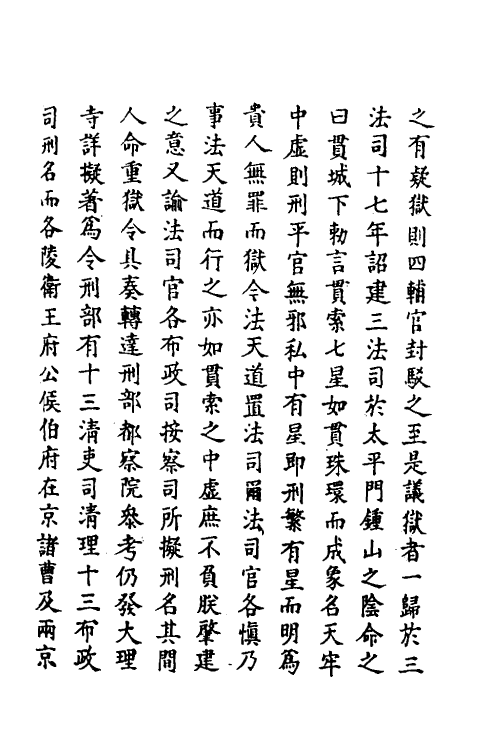 之有疑獄則四輔官封駁之至是議獄者一歸於三
法司十七年詔建三法司於太平門鍾山之陰命之
曰貫城下勅言貫索七星如貫珠環而成象名天牢
中虛則刑平官無邪私中有星即刑繁有星而明爲
貴人無罪而獄今法天道置法司爾法司官各慎乃
事法天道而行之亦如貫索之中虛庶不負朕肇建
之意又諭法司官各布政司按察司所擬刑名其間
人命重獄令具奏轉達刑部都察院叅考仍發大理
寺詳擬著爲令刑部有十三淸吏司清理十三布政
司刑名而各陵衛王府公侯伯府在京諸曹及兩京